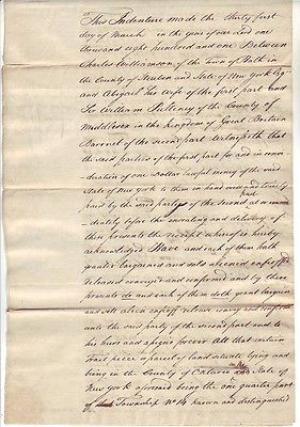 This Indenture made the thirty first
day of March in the year of our Lord one
thousand eight hundred and one Between
Charles Williamson of the Town of Bath in
the County of Steuben and State of New York Esqr
and Abigail his wife of the first part and
Sir William Pulteney of the County of
Middlesex in the Kingdom of Great Britain
Baronet of the second part Witnesseth that
the said parties of the first part for and in consi-
deration of one Dollar lawful money of the said
State of New York to them in hand
paid by the said party of the second part at or imme-
diately before the ensealing and delivery of
these presents the receipt whereof is hereby
acknowledged Have and each of them hath
granted bargained and sold aliened enfeoffed
released conveyed and confirmed and by these
presents do and each of them doth grant bargain
and sell alien enfeoff release convey and confirm
unto the said party of the second part and to
his heirs and assigns forever All that certain
tract piece or parcel of land situate lying and
being in the County of Ontario and State of
New York aforesaid being the one quarter part
of Township No known and distinguished